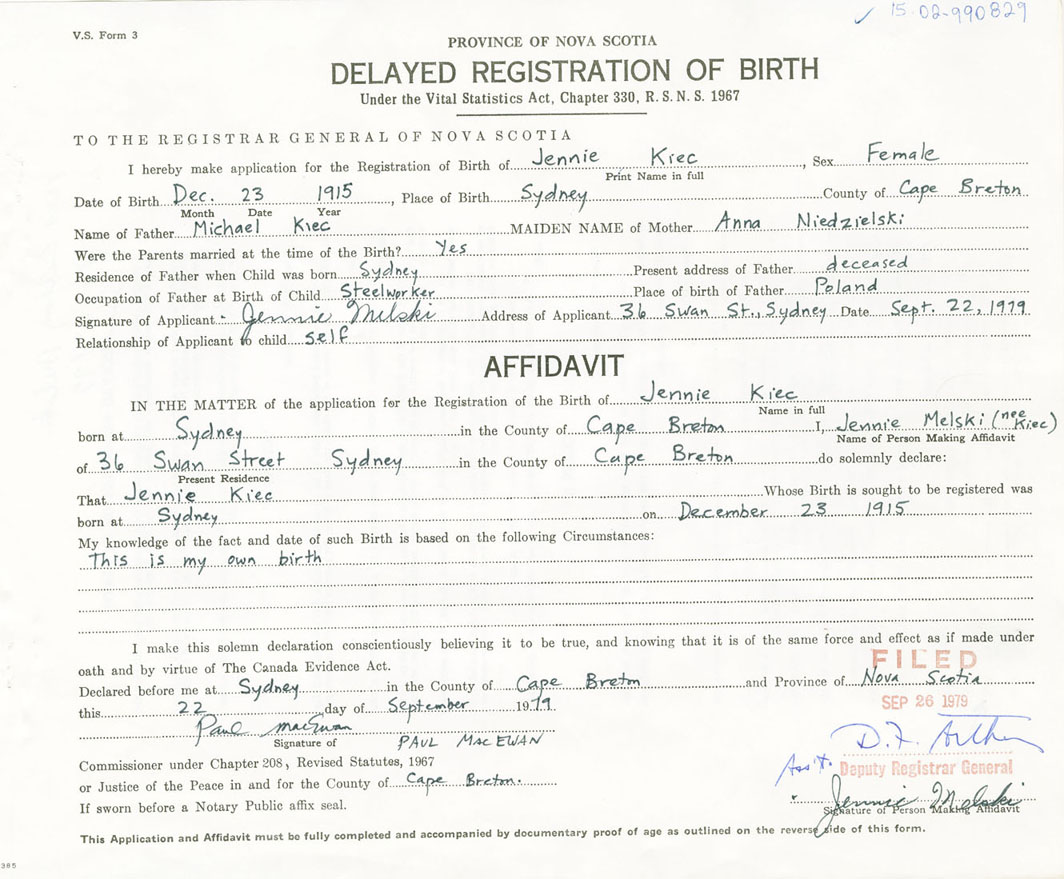 ✓ 15-02-990829
V.S. Form 3
PROVINCE OF NOVA SCOTIA
DELAYED REGISTRATION OF BIRTH
Under the Vital Statistics Act, Chapter 330, R.S.N.S. 1967
TO THE REGISTRAR GENERAL OF NOVA SCOTIA
I hereby make application for the Registration of Birth of Jennie Kiec, Sex Female
Print Name in full
Date of Birth Dec. 23 1915, Place of Birth Sydney County of Cape Breton
Month Date Year
Name of Father Michael Kiec MAIDEN NAME of Mother Anna Niedzielski
Were the Parents married at the time of the Birth? Yes
Residence of Father when Child was born Sydney Present address of Father deceased
Occupation of Father at Birth of Child Steelworker Place of birth of Father Poland
Signature of Applicant Jennie Melski Address of Applicant 36 Swan St., Sydney Date Sept. 22, 1979
Relationship of Applicant to child self
AFFIDAVIT
IN THE MATTER of the application for the Registration of the Birth of Jennie Kiec
Name in full
born at Sydney in the County of Cape Breton I, Jennie Melski (nee Kiec)
Name of Person Making Affidavit
of 36 Swan Street Sydney in the County of Cape Breton do solemnly declare:
Present Residence
That Jennie Kiec Whose Birth is sought to be registered was
born at Sydney on December 23 1915
My knowledge of the fact and date of such Birth is based on the following Circumstances:
This is my own birth
I make this solemn declaration conscientiously believing it to be true, and knowing that it is of the same force and effect as if made under
oath and by virtue of The Canada Evidence Act.
FILED
Declared before me at Sydney in the County of Cape Breton and Province of Nova Scotia
SEP 26 1979
this 22 day of September 1979
Paul MacEwan
Signature of PAUL MacEWAN
Commissioner under Chapter 208, Revised Statutes, 1967
Ass't. Deputy Registrar General
or Justice of the Peace in and for the County of Cape Breton.
Jennie Melski
Signature of Person Making Affidavit
If sworn before a Notary Public affix seal.
This Application and Affidavit must be fully completed and accompanied by documentary proof of age as outlined on the reverse side of this form.
385